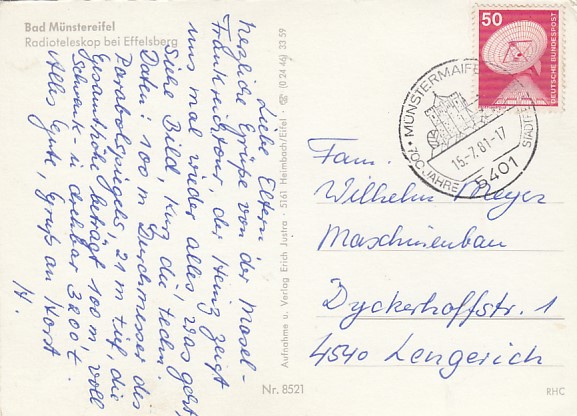 Bad Münstereifel
Radioteleskop bei Effelsberg
Liebe Eltern
herzliche Grüße von der Mosel-
Frankreichtour, der Heinz zeigt
uns mal wieder alles, was geht,
Siehe Bild, kurz die techn.
Daten: 100 m Durchmesser des
Parabolspiegels, 21 m tief, die
Gesamthöhe beträgt 100 m, voll
Schwenk- u drehbar 3200 t.
Alles Gute, Gruß an Horst
H.
Aufnahme u. Verlag Erich Justra · 5161 Heimbach/Eifel · ☎ (0 24 46) 33 59
Nr. 8521
50
DEUTSCHE BUNDESPOST
MÜNSTERMAIFELD
700 JAHRE STADT
15.-7.81-17
5401
Fam.
Wilhelm Meyer
Maschinenbau
Dyckerhoffstr. 1
4540 Lengerich
RHC